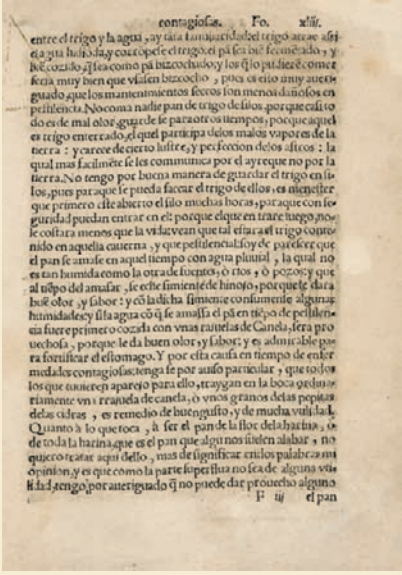 contagiosas. Fo. xliii.
entre el trigo y la agua, ay tãta familiaridad del trigo atrae assi
el agua hedioda, y corrõpese el trigo. el pã sea biẽ fermẽtado, y
biẽ cozido, q̃ sea como pã bizcochado, y los q̃ lo pudierẽ comer
seria muy bien que vsasen bizcocho, pues es esto muy aueri-
guado, que los mantenimientos secros son menos dañosos en
pestilencia. No coma nadie pan de trigo de silos, porque casi to
do es de mal olor, guardese para otros tiempos, porque aquel
es trigo enterrado, el quel participa delos malos vapores de la
tierra: y carece de cierto lustre, y perfeccion delos astros: la
qual mas facilmẽte se les communica por el ayre que no por la
tierra. No tengo por buena manera de guardar el trigo en si-
los, pues para que se pueda saccar el trigo de ellos, es menester
que primero este abierto el silo muchas horas, para que con se-
guridad puedan entrar en el: porque el que entrare luego, no
le costara menos que la vida: vean que tal estara el trigo conte-
nido en aquella cauerna, y que pestilencial: soy de parescer que
el pan se amase en aquel tiempo con agua pluuial, la qual no
es tan humida como la otra de fuentes, ò rios, ò pozos: y que
al tiẽpo del amasar, se eche simiente de hinojo, porque le dara
buẽ olor, y sabor: y cõ la dicha simiente consumense algunas
humidades: y si la agua cõ q̃ se amassa el pã en tiẽpo de pestilen-
cia fuere primero cozida con vnas raxuelas de Canela, sera pro
uechosa, porque le da buen olor, y sabor: y es admirable pa-
ra fortificar el estomago. Y por esta causa en tiempo de enfer
medades contagiosas: tengase por auiso particular, que todos
los que tuuieren aparejo para ello, traygan en la boca ordina-
riamente vna raxuela de canela, ò vnos granos delas pepitas
delas cidras, es remedio de buen gusto, y de mucha vtilidad.
Quanto à lo que toca, à ser el pan de la flor dela harina, ò
de toda la harina, que es el pan que algunos suelen alabar, no
quiero tratar aqui dello, mas de significar en dos palabras mi
opinion, y es que como la parte superflua no sea de alguna vti-
lidad, tengo por aueriguado q̃ no puede dar prouecho alguno
F iij el pan